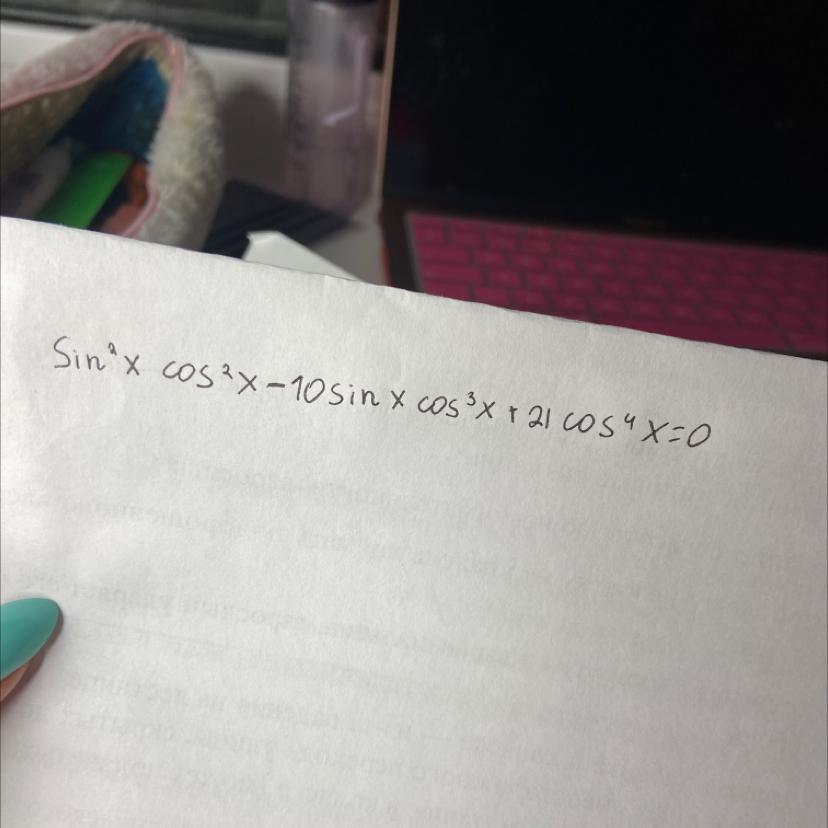 sin²x cos²x-10sin x cos³x+21 cos⁴x=0